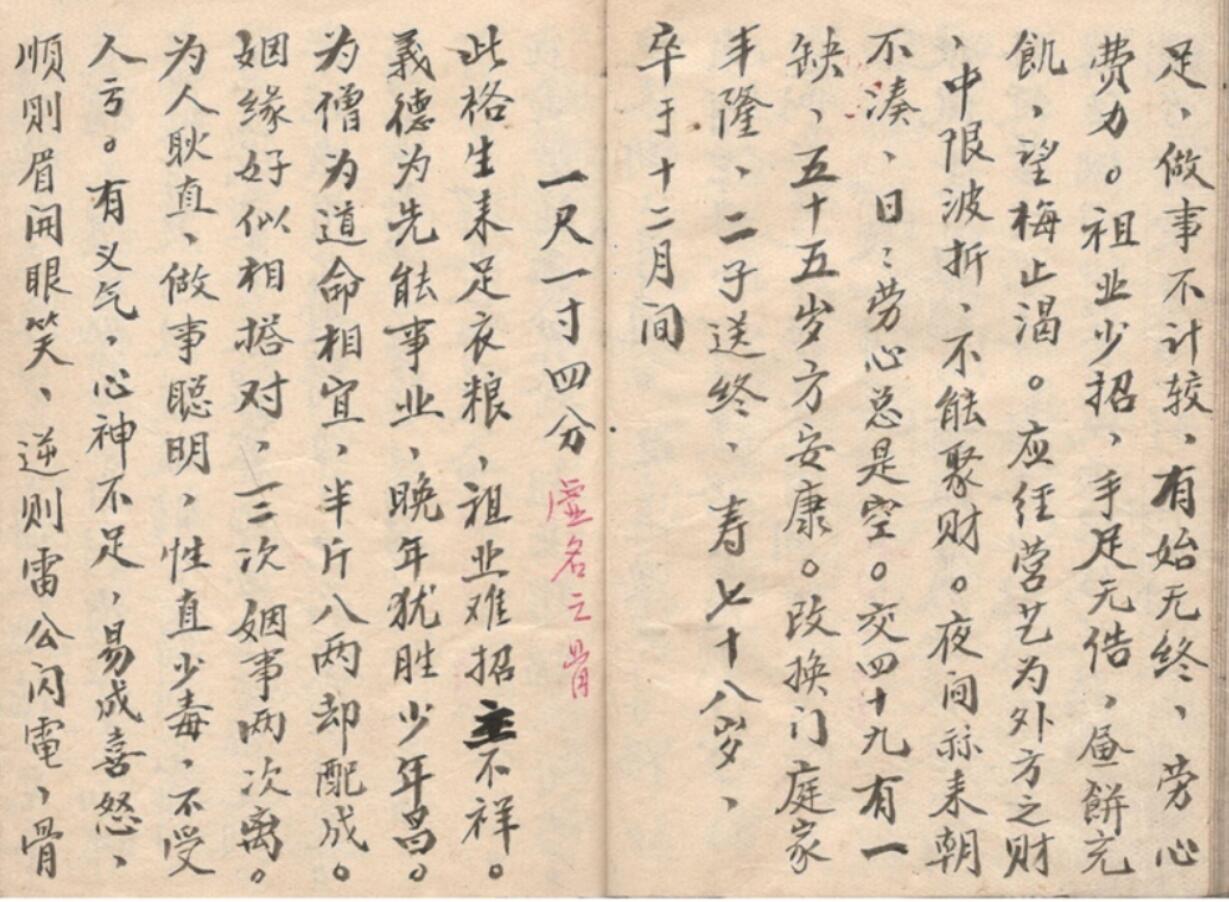 足、做事不计较、有始无终、劳心
费力。祖业少招、手足无倚、画餅充
飢、望梅止渴。应经营艺为外方之财
、中限波折、不能聚财。夜间祘来朝
不凑、日〻劳心总是空。交四十九有一
缺、五十五岁方安康。改换门庭家
丰隆、二子送终、寿七十八岁、
卒于十二月间
一尺一寸四分 虚名之骨
此格生来足衣粮、祖业难招主不祥。
義德为先能事业、晚年犹胜少年昌。
为僧为道命相宜、半斤八两却配成。
姻缘好似相搭对、三次姻事两次离。
为人耿直、做事聪明、性直少毒、不受
人亏。有义气、心神不足、易成喜怒、
顺则眉开眼笑、逆则雷公闪電、骨